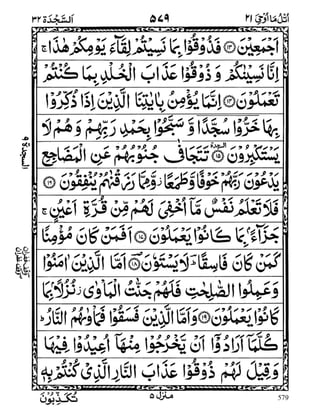 السَّجْدَة ٣٢ ٥٧٩ اُتْلُ مَاۤ اُوْحِيَ ٢١
اَجْمَعِيْنَ ﴿١٣﴾ فَذُوْقُوْا بِمَا نَسِيْتُمْ لِقَآءَ يَوْمِكُمْ هٰذَا ۚ
اِنَّا نَسِيْنٰكُمْ وَ ذُوْقُوْا عَذَابَ الْخُلْدِ بِمَا كُنْتُمْ
تَعْمَلُوْنَ ﴿١٤﴾ اِنَّمَا يُؤْمِنُ بِاٰيٰتِنَا الَّذِيْنَ اِذَا ذُكِّرُوْا
بِهَا خَرُّوْا سُجَّدًا وَّ سَبَّحُوْا بِحَمْدِ رَبِّهِمْ وَ هُمْ لَا
يَسْتَكْبِرُوْنَ ﴿١٥﴾ تَتَجَافٰى جُنُوْبُهُمْ عَنِ الْمَضَاجِعِ
يَدْعُوْنَ رَبَّهُمْ خَوْفًا وَّطَمَعًا وَّمِمَّا رَزَقْنٰهُمْ يُنْفِقُوْنَ ﴿١٦﴾
فَلَا تَعْلَمُ نَفْسٌ مَّاۤ اُخْفِيَ لَهُمْ مِّنْ قُرَّةِ اَعْيُنٍ ۚ
جَزَآءًۢ بِمَا كَانُوْا يَعْمَلُوْنَ ﴿١٧﴾ اَفَمَنْ كَانَ مُؤْمِنًا
كَمَنْ كَانَ فَاسِقًا ؕ لَا يَسْتَوٗنَ ﴿١٨﴾ اَمَّا الَّذِيْنَ اٰمَنُوْا
وَعَمِلُوا الصّٰلِحٰتِ فَلَهُمْ جَنّٰتُ الْمَاْوٰى ۫ نُزُلًۢا بِمَا
كَانُوْا يَعْمَلُوْنَ ﴿١٩﴾ وَاَمَّا الَّذِيْنَ فَسَقُوْا فَمَاْوٰىهُمُ النَّارُ ؕ
كُلَّمَاۤ اَرَادُوْۤا اَنْ يَّخْرُجُوْا مِنْهَاۤ اُعِيْدُوْا فِيْهَا
وَ قِيْلَ لَهُمْ ذُوْقُوْا عَذَابَ النَّارِ الَّذِيْ كُنْتُمْ بِهٖ
تُكَذِّبُوْنَ منزل ٥ 579
السجدة ٩